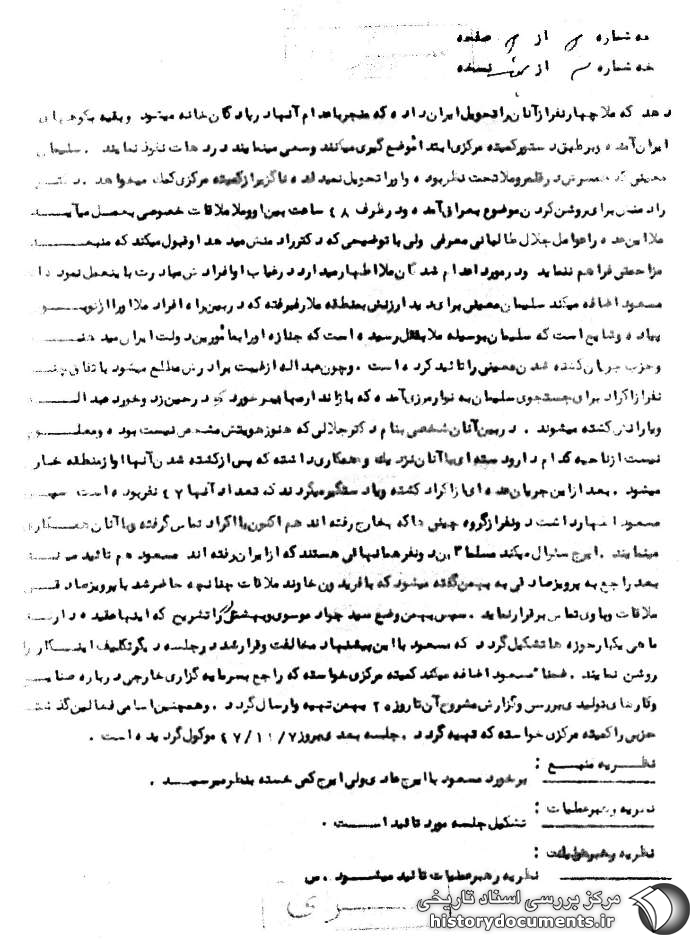 شماره از صفحه
شماره از نسخه
دهد که ملا چهارنفر از آنان را تحویل ایران داده که منجر به اعدام آنها در پادگان خانه میشود و بقیه بکوههای
ایران آمده و بر طبق دستور کمیته مرکزی ابتدا موضع گیری میکنند و سعی مینمایند در دهات نفوذ نمایند . سلیمان
معینی که همسرش در قلمرو ملا تحت نظر بوده و او را تحویل نمیداده ناگزیر از کمیته مرکزی کمک میخواهد . دکتر
رادمنش برای روشن کردن موضوع بعراق آمده و در ظرف ۴۸ ساعت بین او و ملا ملاقات خصوصی بعمل میآید
ملا این عده را عوامل جلال طالبانی معرفی ولی با توضیحی که دکتر رادمنش میدهد او قبول میکند که منبعد
مزاحمتی فراهم ننماید و در مورد اعدام شدگان ملا اظهار میدارد در غیاب او افرادش مبادرت باین عمل نموده اند
مسعود اضافه میکند سلیمان معینی برای دیدار زنش بمنطقه ملا میرفته که در بین راه افراد ملا او را از
پیاده و شایع است که سلیمان بوسیله ملا بقتل رسیده است که جنازه او را بمأمورین دولت ایران میدهند
و حزب جریان کشته شدن معینی را تائید کرده است . و چون عبداله از غیبت برادرش مطلع میشود باتفاق چند
نفر از اکراد برای جستجوی سلیمان به نوار مرزی آمده که با ژاندارمها برخورد که در حین زد و خورد عبداله
و یارانش کشته میشوند . در بین آنان شخصی بنام دکتر جلالی که هنوز هویتش مشخص نیست بوده و معلوم
نیست از ناحیه کدام دارودسته ای با آنان نزدیک و همکاری داشته که پس از کشته شدن آنها او از منطقه خارج
میشود . بعد از این جریان عده ای از اکراد کشته و یا دستگیر میگردند که تعداد آنها ۴۷ نفر بوده است سپس
مسعود اظهار داشت دونفر از گروه چینی ها که بخارج رفته اند هم اکنون با اکراد تماس گرفته و با آنان همکاری
مینمایند . ایرج سئوال میکند مسلما این دونفر همانهائی هستند که از ایران رفته اند مسعود هم تائید
بعد راجع به پرویز صادقی به بهمن گفته میشود که با فریدون خاوند ملاقات چنانچه حاضر شد با پرویز صادقی
ملاقات و با وی تماس برقرار نماید . سپس بهمن وضع سید جواد موسوی و بهشتی را تشریح که اینها عقیده دارند
ماهی یکبار حوزه ها تشکیل گردد که مسعود با این پیشنهاد مخالفت و قرار شد در جلسه دیگر تکلیف اینکار را
روشن نمایند . ضمنا" مسعود اضافه میکند کمیته مرکزی خواسته که راجع بسرمایه گزاری خارجی درباره صنایع
و کارهای تولیدی بررسی و گزارش مشروح آن تا روز ۲۵ بهمن تهیه و ارسال گردد . و همچنین اسامی فعالین گذشته
حزبی را کمیته مرکزی خواسته که تهیه گردد . جلسه بعدی بروز ۴۷/۱۱/۷ موکول گردیده است .
نظریه منبع :
برخورد مسعود با ایرج عادی ولی ایرج کمی خسته بنظر میرسید .
نظریه رهبر عملیات :
تشکیل جلسه مورد تائید است .
نظریه
نظریه رهبر عملیات تائید میشود . س
سری
مرکز بررسی اسناد تاریخی
historydocuments.ir